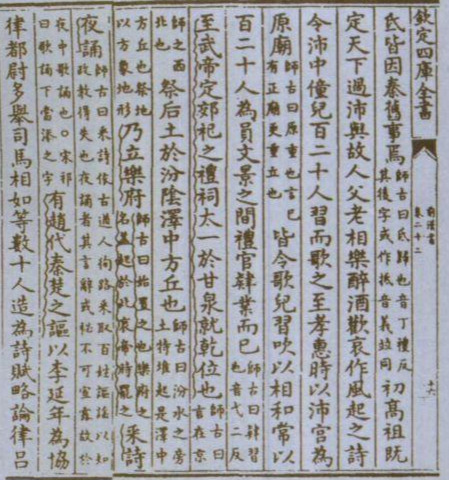 欽定四庫全書
前漢書
卷二十二
十六
氐皆因秦舊事焉師古曰氐歸也音丁禮反其後字或作抵音義並同初髙祖既
定天下過沛與故人父老相樂醉酒歡哀作風起之詩
令沛中僮兒百二十人習而歌之至孝惠時以沛宫為
原廟師古曰原重也言已有正廟更重立也皆令歌兒習吹以相和常以
百二十人為員文景之間禮官肄業而已師古曰肄習也音弋二反
至武帝定郊祀之禮祠太一於甘泉就乾位也師古曰言在京
師之西北也祭后土於汾陰澤中方丘也師古曰汾水之旁土特堆起是澤中
方丘也祭地以方象地形乃立樂府師古曰始置之也樂府之名蓋起於此哀帝時罷之采詩
夜誦師古曰采詩依古遒人徇路采取百姓謳謠以知政教得失也夜誦者其言辭或祕不可宣露故於
夜中歌誦也○宋祁曰歌誦下當添之字有趙代秦楚之謳以李延年為協
律都尉多舉司馬相如等數十人造為詩賦略論律吕